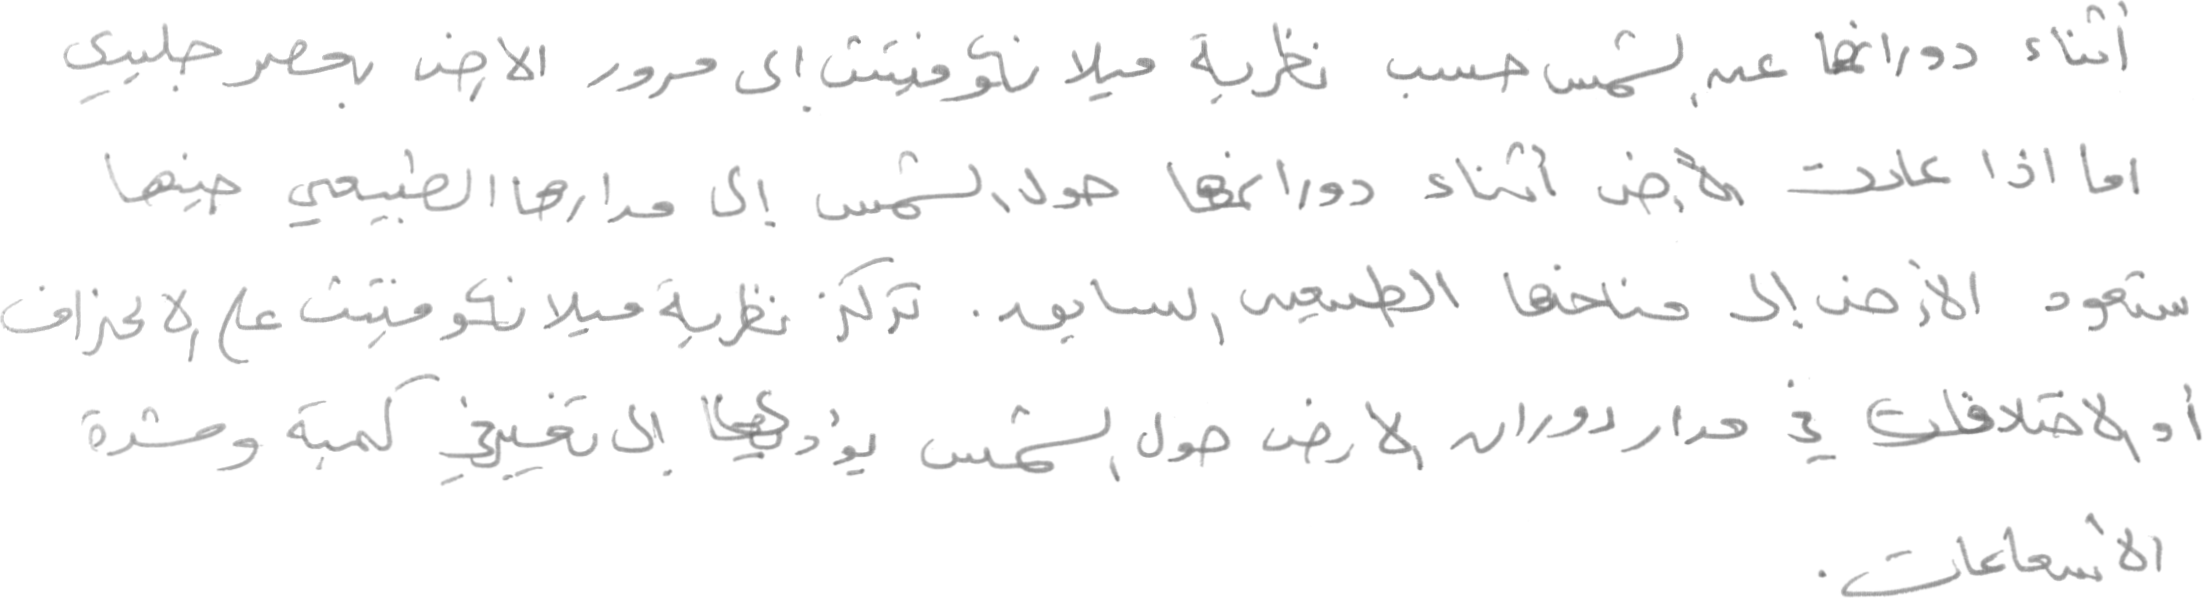 أثناء دورانها عن الشمس حسب نظرية ميلانكوفيتش إلى مرور الارض بعصر جليدي
اما اذا عادت الأرض أثناء دورانها حول الشمس إلى مدارها الطبيعي حينها
ستعود الأرض إلى مناخها الطبيعي السابق. تركز نظرية ميلانكوفيتش على الانحراف
أو الاختلافات في مدار دوران الارض حول الشمس يؤدي إلى تغير في كمية وشدة
الأشعاعات.